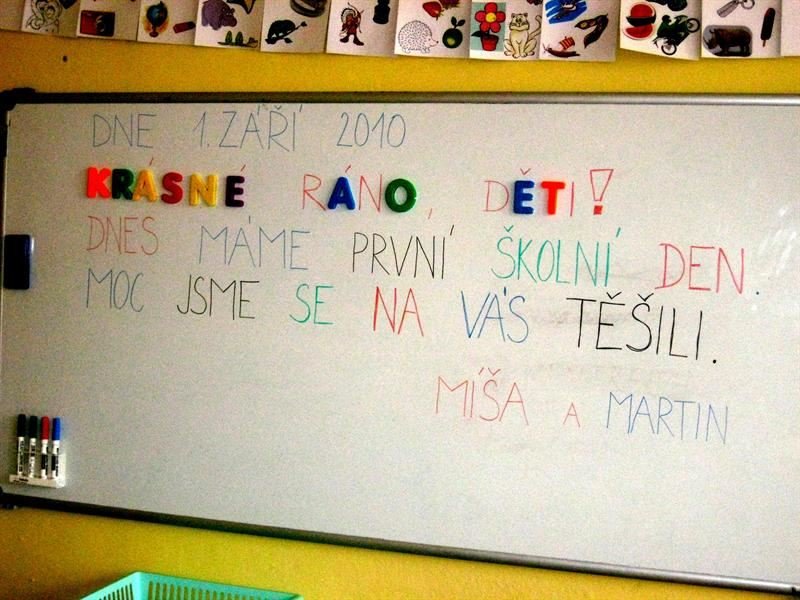 DNE 1. ZÁŘÍ 2010
KRÁSNÉ RÁNO, DĚTI!
DNES MÁME PRVNÍ ŠKOLNÍ DEN.
MOC JSME SE NA VÁS TĚŠILI.
MÍŠA A MARTIN